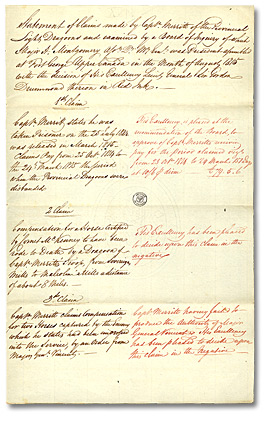 Statement of Claims made by Captn. Merritt of the Provincial
Light Dragoons and examined by a Board of Inquiry of which
Major Montgomery was President assembled
at Fort George Upper Canada in the Month of August 1815
with the decision of His Excellency Lieut. General Sir Gordon
Drummond thereon in Red Ink.
1st. Claim
Captn. Merritt, states he was
taken Prisoner on the 25 July 1814
was released in March 1815.
Claims Pay from 25 Oct. 1814 to
the 24 March 1815 the period
when the Provincial Dragoons were
disbanded
His Excellency is pleased at the
recommendation of the Board, to
approve of Captn. Merritts receiving
pay for the period claimed
2 Claim
Compensation for a Horse certified
by to have been
rode to Death by a Dragoon of
Captn. Merritts Troop, from
Mills to Malcolm's Mills a distance
of about 8 Miles.
His Excellency has been pleased
to decide upon this Claim in the
negative
3rd. Claim
Captn. Merritt claims compensation
for two Horses captured by the Enemy
which he states had been impressed
into the Service, by an order from
Major Genl.
Captn. Merritt having failed to
produce the Authority of Major
General His Excellency
has been pleased to decide upon
this Claim in the Negative